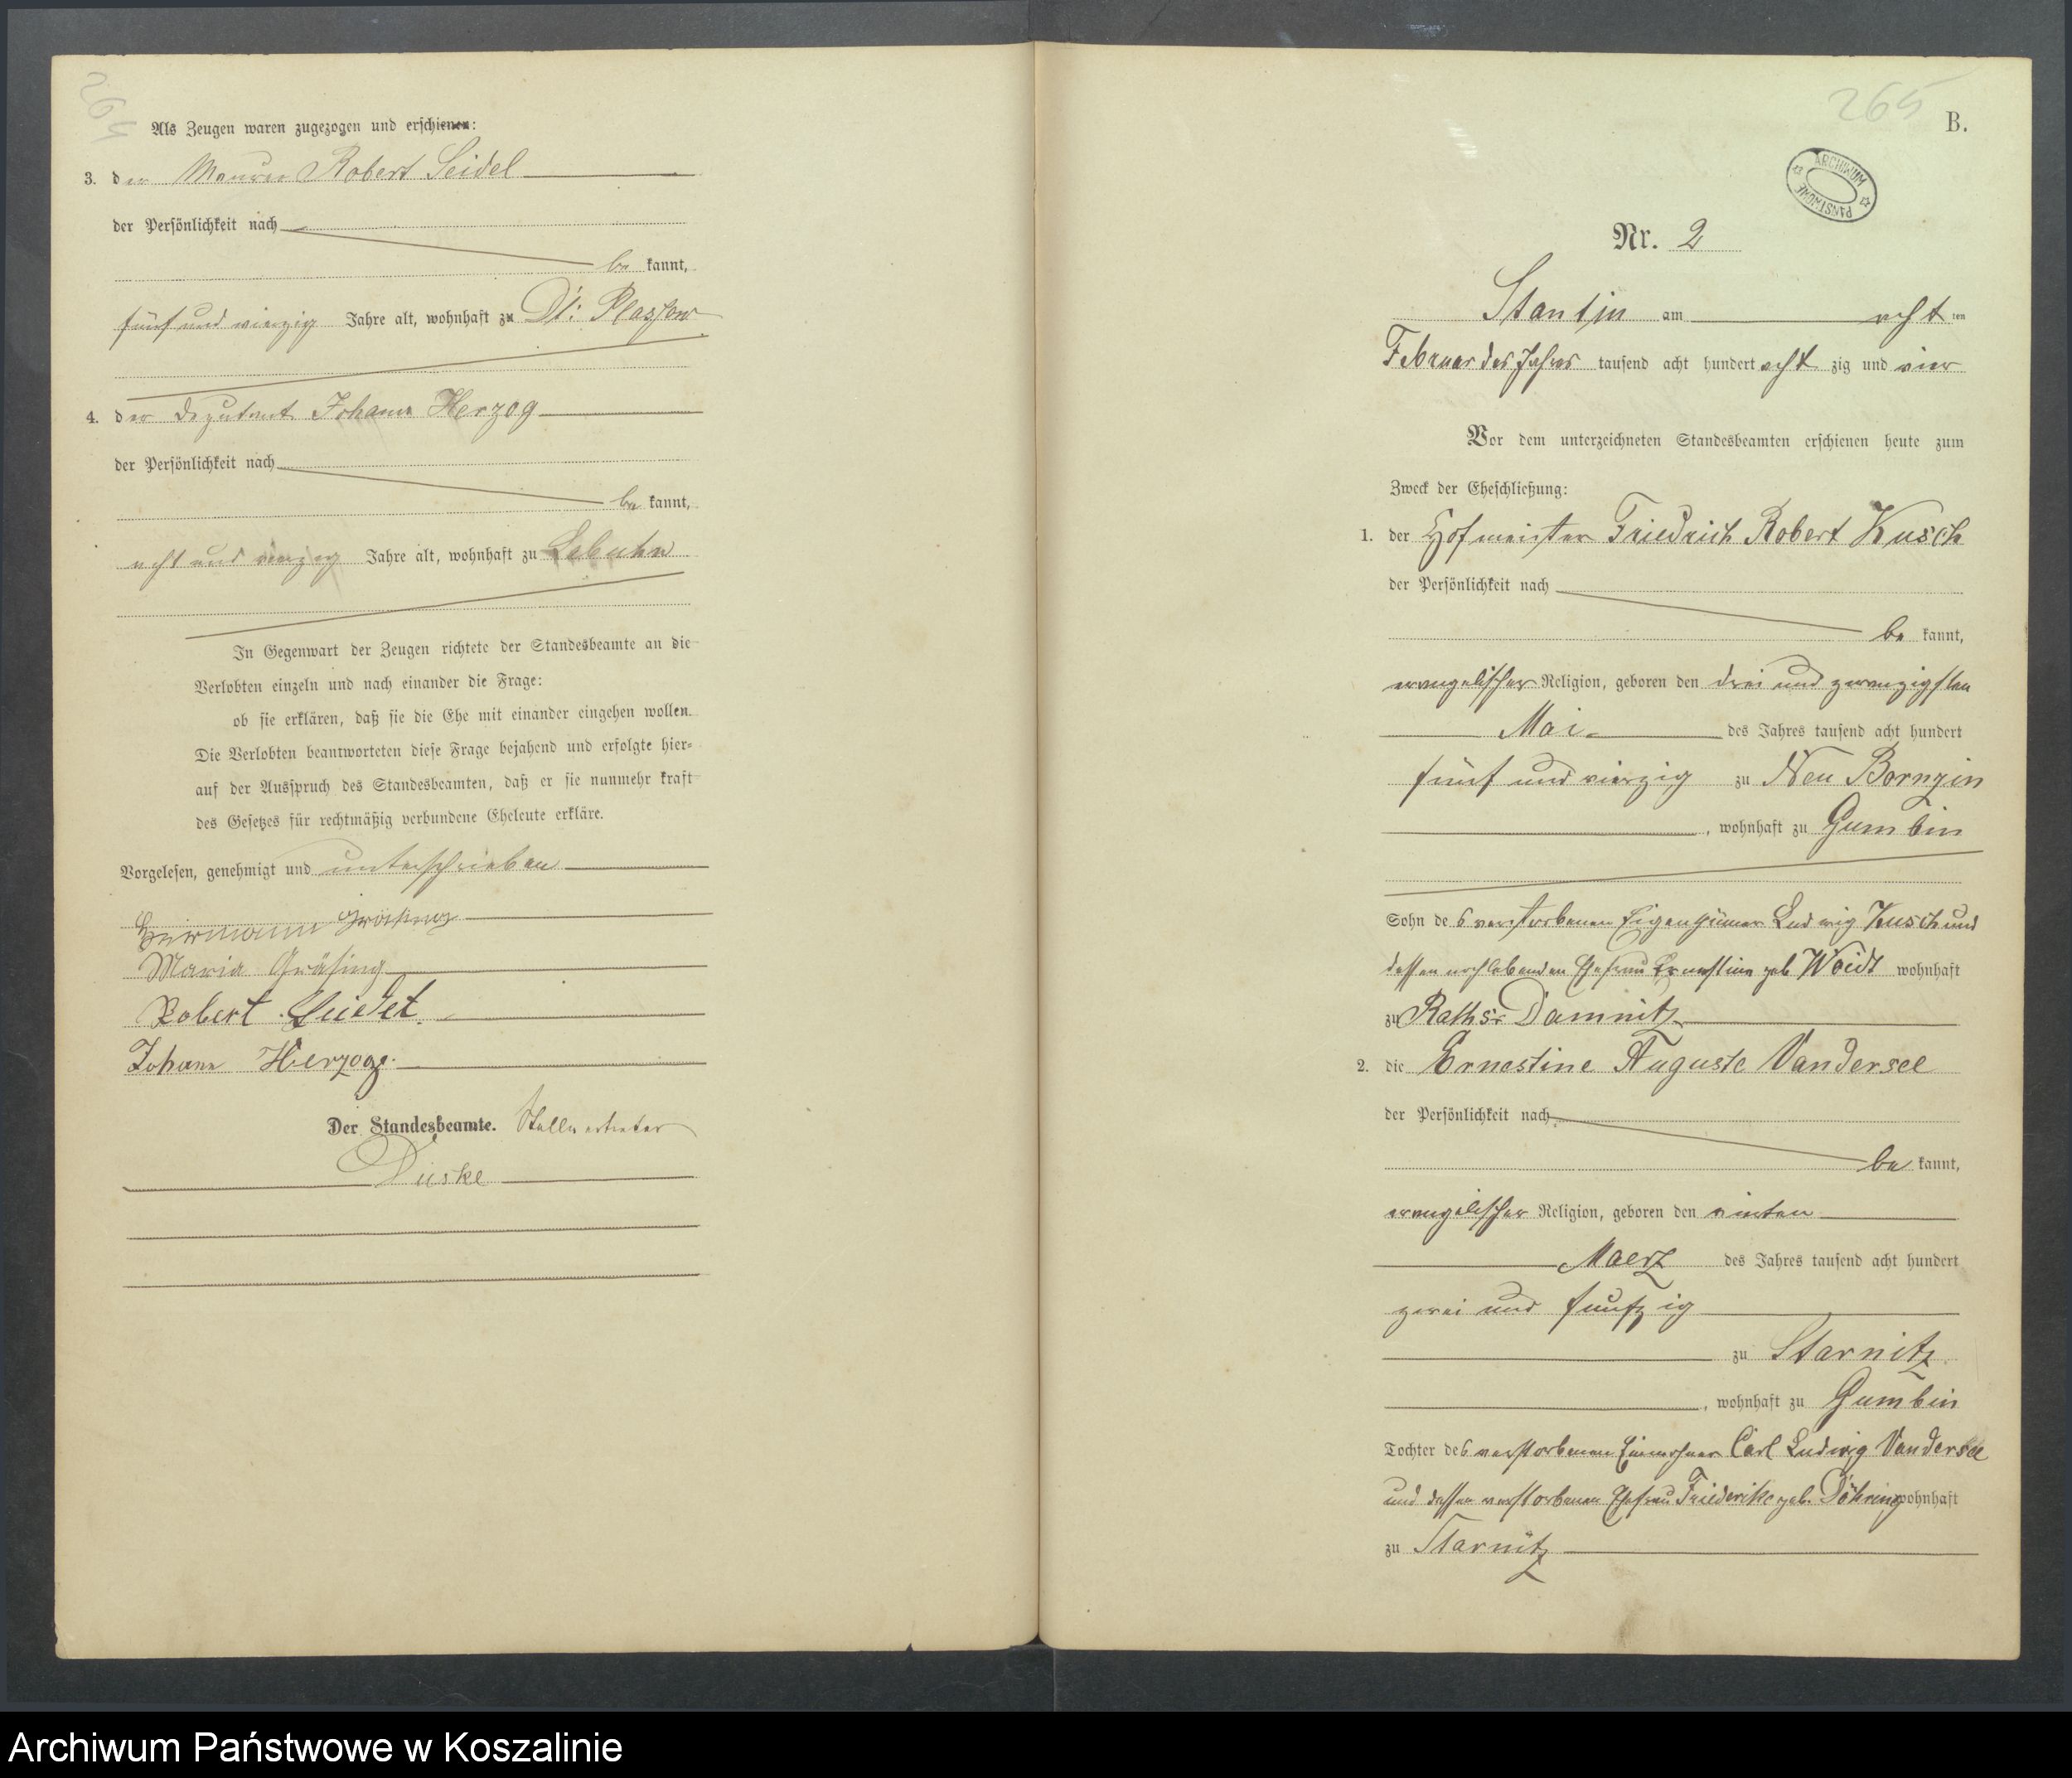 Als Zeugen waren zugezogen und erschienen:
3. der Maurer Robert Seidel
der Persönlichkeit nach
be kannt,
fünf und vierzig Jahre alt, wohnhaft zu Dt: Plassow
4. der Deputant Johann Herzog
der Persönlichkeit nach
be kannt,
acht und vierzig Jahre alt, wohnhaft zu Labuhn
In Gegenwart der Zeugen richtete der Standesbeamte an die
Verlobten einzeln und nach einander die Frage:
ob sie erklären, daß sie die Ehe mit einander eingehen wollen.
Die Verlobten beantworteten diese Frage bejahend und erfolgte hier-
auf der Ausspruch des Standesbeamten, daß er sie nunmehr kraft
des Gesetzes für rechtmäßig verbundene Eheleute erkläre.
Vorgelesen, genehmigt und unterschrieben
Herrmann
Maria Gräsing
Robert Seidel.
Johann Herzog.
Der Standesbeamte. Stellvertreter
Düske
265
B.
ARCHIWUM PAŃSTWOWE
Nr. 2
Stantin am acht ten
Februar des Jahres tausend acht hundert acht zig und vier
Vor dem unterzeichneten Standesbeamten erschienen heute zum
Zweck der Eheschließung:
1. der Hofmeister Friedrich Robert Kusch
der Persönlichkeit nach
be kannt,
evangelischer Religion, geboren den drei und zwanzigsten
Mai des Jahres tausend acht hundert
fünf und vierzig zu Neu Bornzin
, wohnhaft zu Gumbin
Sohn des verstorbenen Eigenthümer Ludwig Kusch und
dessen nachlebenden Ehefrau Ernestine geb. Woidt wohnhaft
zu Raths-Damnitz
2. die Ernestine Auguste Vandersee
der Persönlichkeit nach
be kannt,
evangelischer Religion, geboren den
Maerz des Jahres tausend acht hundert
zwei und funfzig
zu Starnitz
, wohnhaft zu Gumbin
Tochter des verstorbenen Einwohner Carl Ludwig Vandersee
und dessen verstorbenen Ehefrau Friederike geb. Döhring wohnhaft
zu Starnitz
Archiwum Państwowe w Koszalinie